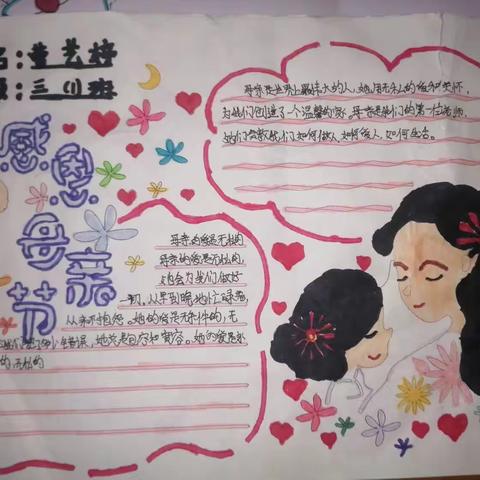 名:董艺婷
级:三(1)班
感恩母亲节
母亲是世界上最伟大的人,她用无私的爱和关怀,
为我们创造了一个温馨的家。母亲是我们的第一位老师,
她们会教我们如何做人,如何爱人,如何生活。
母亲的爱是无私的
母亲的爱是无私的,
她会为我们做好
一切,从早到晚地忙碌着,
从来不抱怨。她的爱是无条件的,无
错误,她总是包容和宽容。她的爱是永
的,无私的